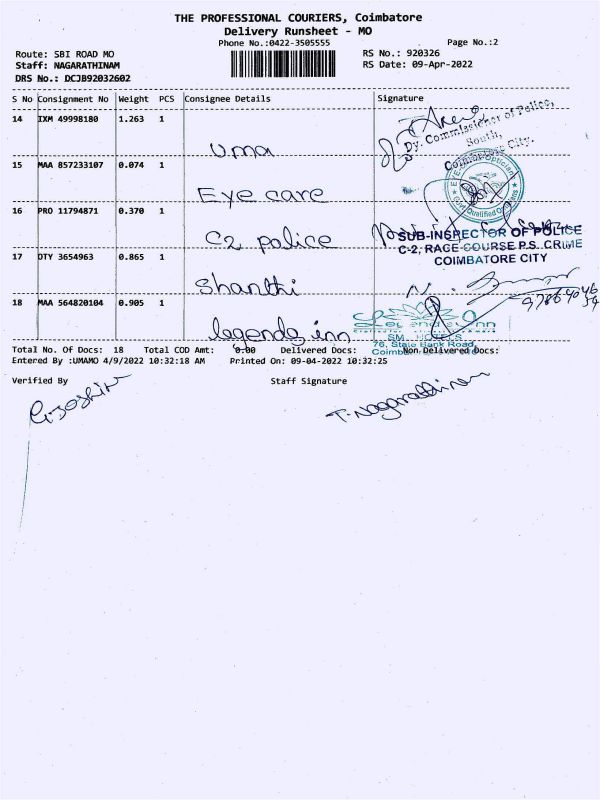 THE PROFESSIONAL COURIERS, Coimbatore
Delivery Runsheet - MO
Phone No.:0422-3505555
Page No.:2
Route: SBI ROAD MO
RS No.: 920326
Staff: NAGARATHINAM
RS Date: 09-Apr-2022
DRS No.: DCJB92032602
S No Consignment No Weight PCS Consignee Details Signature
14 IXM 49998180 1.263 1
Uma
Dy. Commissioner of Police,
South,
Coimbatore City.
15 MAA 857233107 0.074 1
Eye care
Qualified
16 PRO 11794871 0.370 1
C2 police
SUB-INSPECTOR OF POLICE
C-2, RACE COURSE P.S. CRIME
COIMBATORE CITY
17 OTY 3654963 0.865 1
Shanthi
18 MAA 564820104 0.905 1
legends inn
Legends Inn
SM HOTELS
76, State Bank Road,
Total No. Of Docs: 18 Total COD Amt: 0.00 Delivered Docs: Non Delivered Docs:
Entered By :UMAMO 4/9/2022 10:32:18 AM Printed On: 09-04-2022 10:32:25
Verified By Staff Signature
T. Nagarathinam